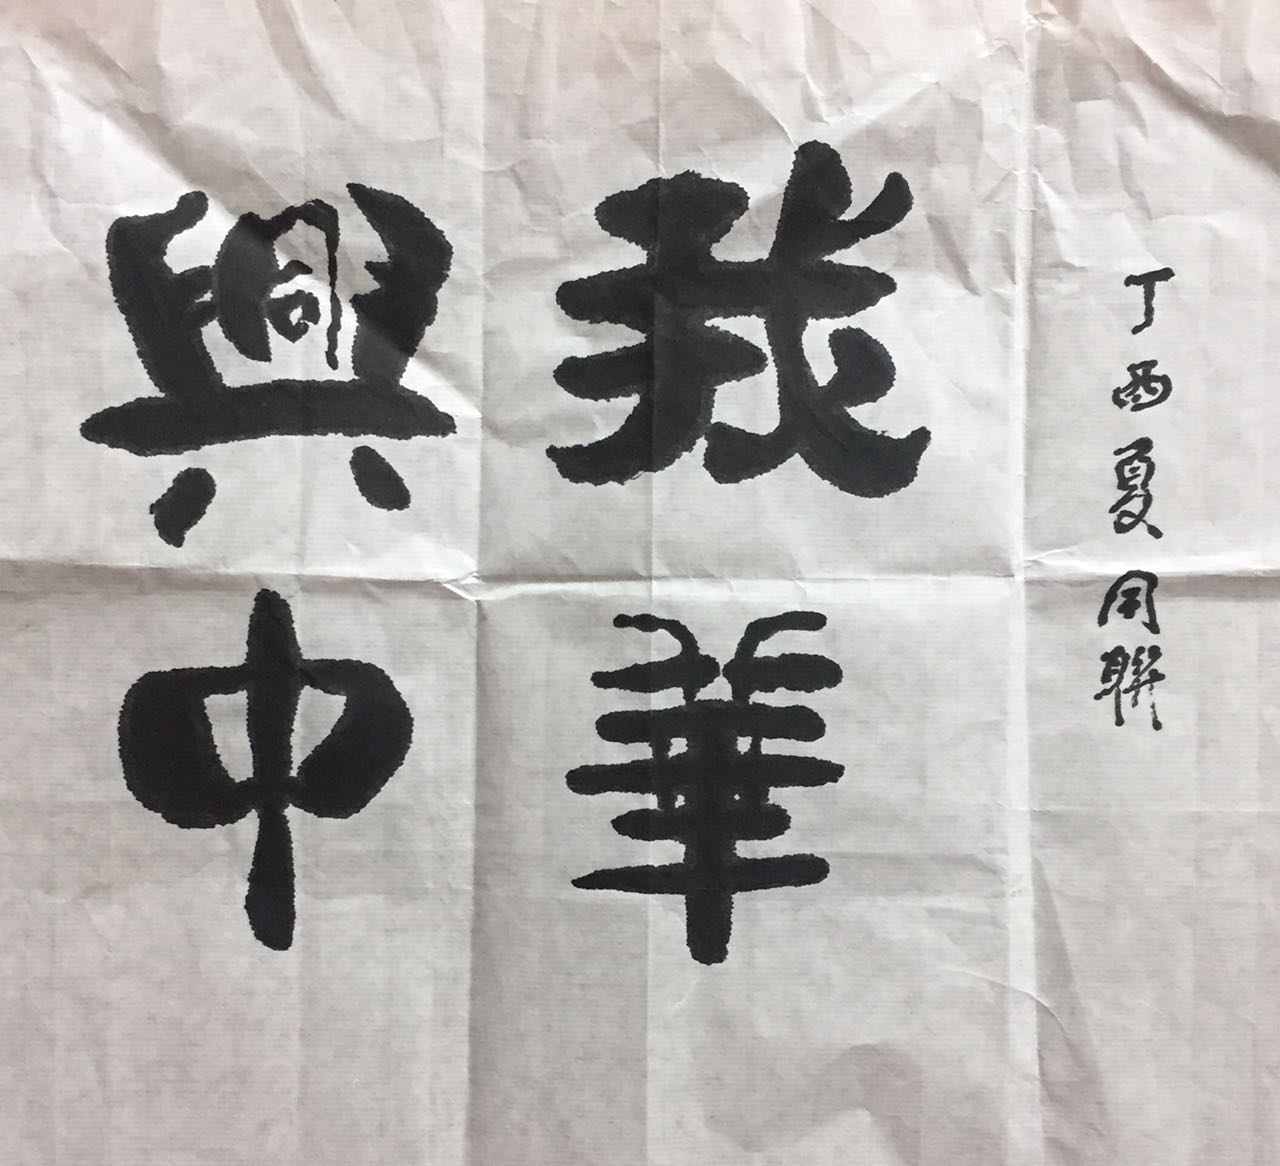 興我
中華
丁酉夏周聯